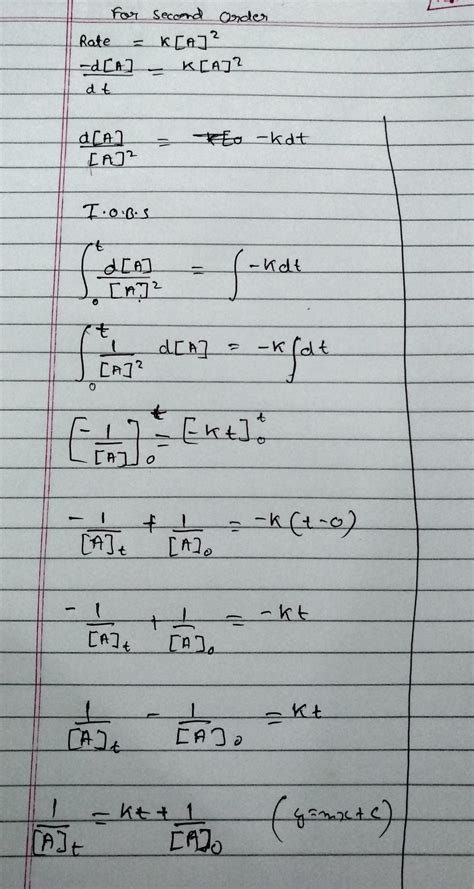 For Second Order
Rate = K[A]²
-d[A]/dt = K[A]²
d[A]/[A]² = -kdt
I.O.B.S
∫₀ᵗ d[A]/[A]² = ∫-Kdt
∫₀ᵗ 1/[A]² d[A] = -K∫dt
[-1/[A]]₀ᵗ = [-Kt]₀ᵗ
-1/[A]t + 1/[A]₀ = -K(t-0)
-1/[A]t + 1/[A]₀ = -Kt
1/[A]t - 1/[A]₀ = Kt
1/[A]t = Kt + 1/[A]₀ (y=mx+c)